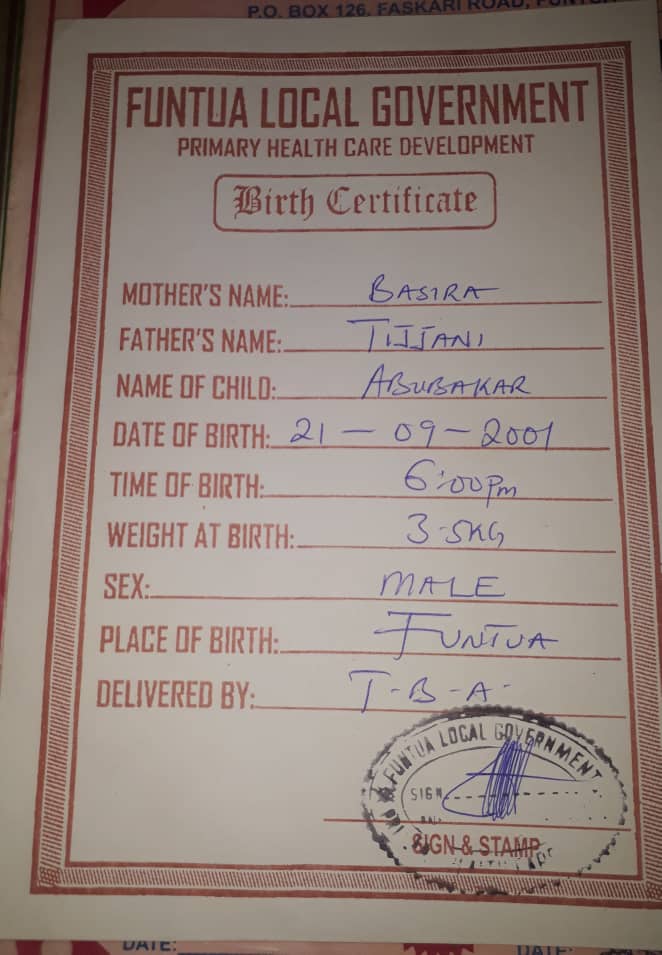 P.O. BOX 126, FASKARI ROAD, FUNTUA
FUNTUA LOCAL GOVERNMENT
PRIMARY HEALTH CARE DEVELOPMENT
Birth Certificate
MOTHER'S NAME: BASIRA
FATHER'S NAME: TIJJANI
NAME OF CHILD: ABUBAKAR
DATE OF BIRTH: 21 - 09 - 2001
TIME OF BIRTH: 6:00pm
WEIGHT AT BIRTH: 3.5KG
SEX: MALE
PLACE OF BIRTH: FUNTUA
DELIVERED BY: T-B-A-
FUNTUA LOCAL GOVERNMENT
SIGN
SIGN & STAMP
DATE:
DATE: